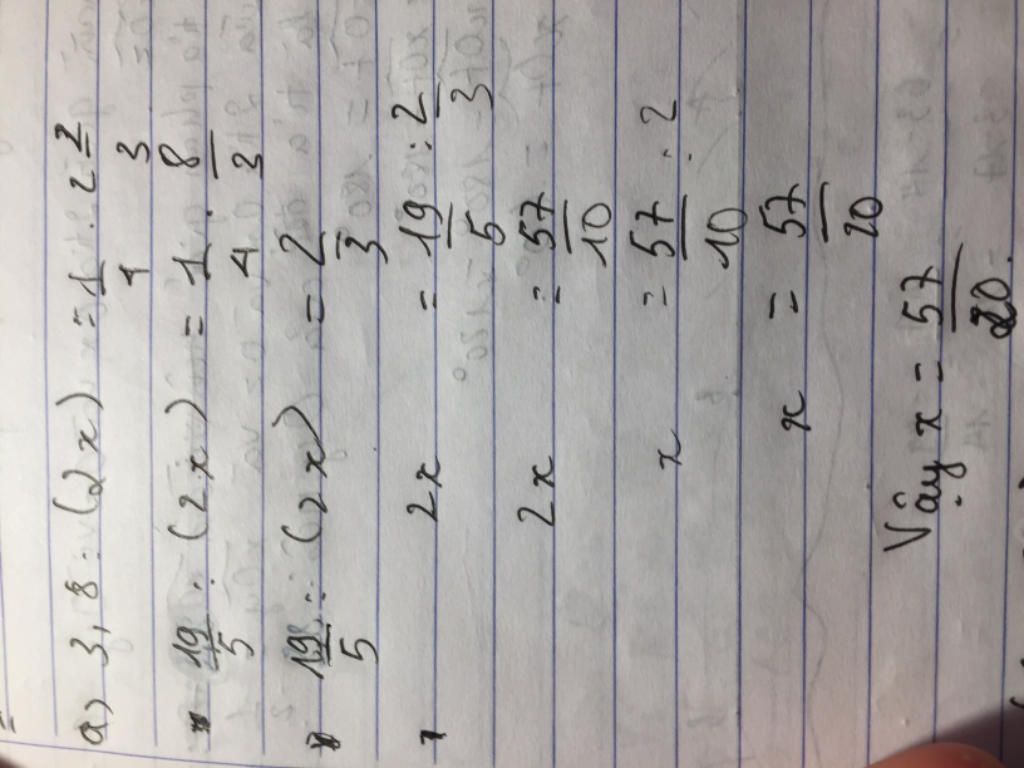 a) 3,8 : (2x) = 1/4 . 2 2/3
19/5 : (2x) = 1/4 . 8/3
19/5 : (2x) = 2/3
2x = 19/5 : 2/3
2x = 57/10
x = 57/10 : 2
x = 57/20
Vậy x = 57/20.